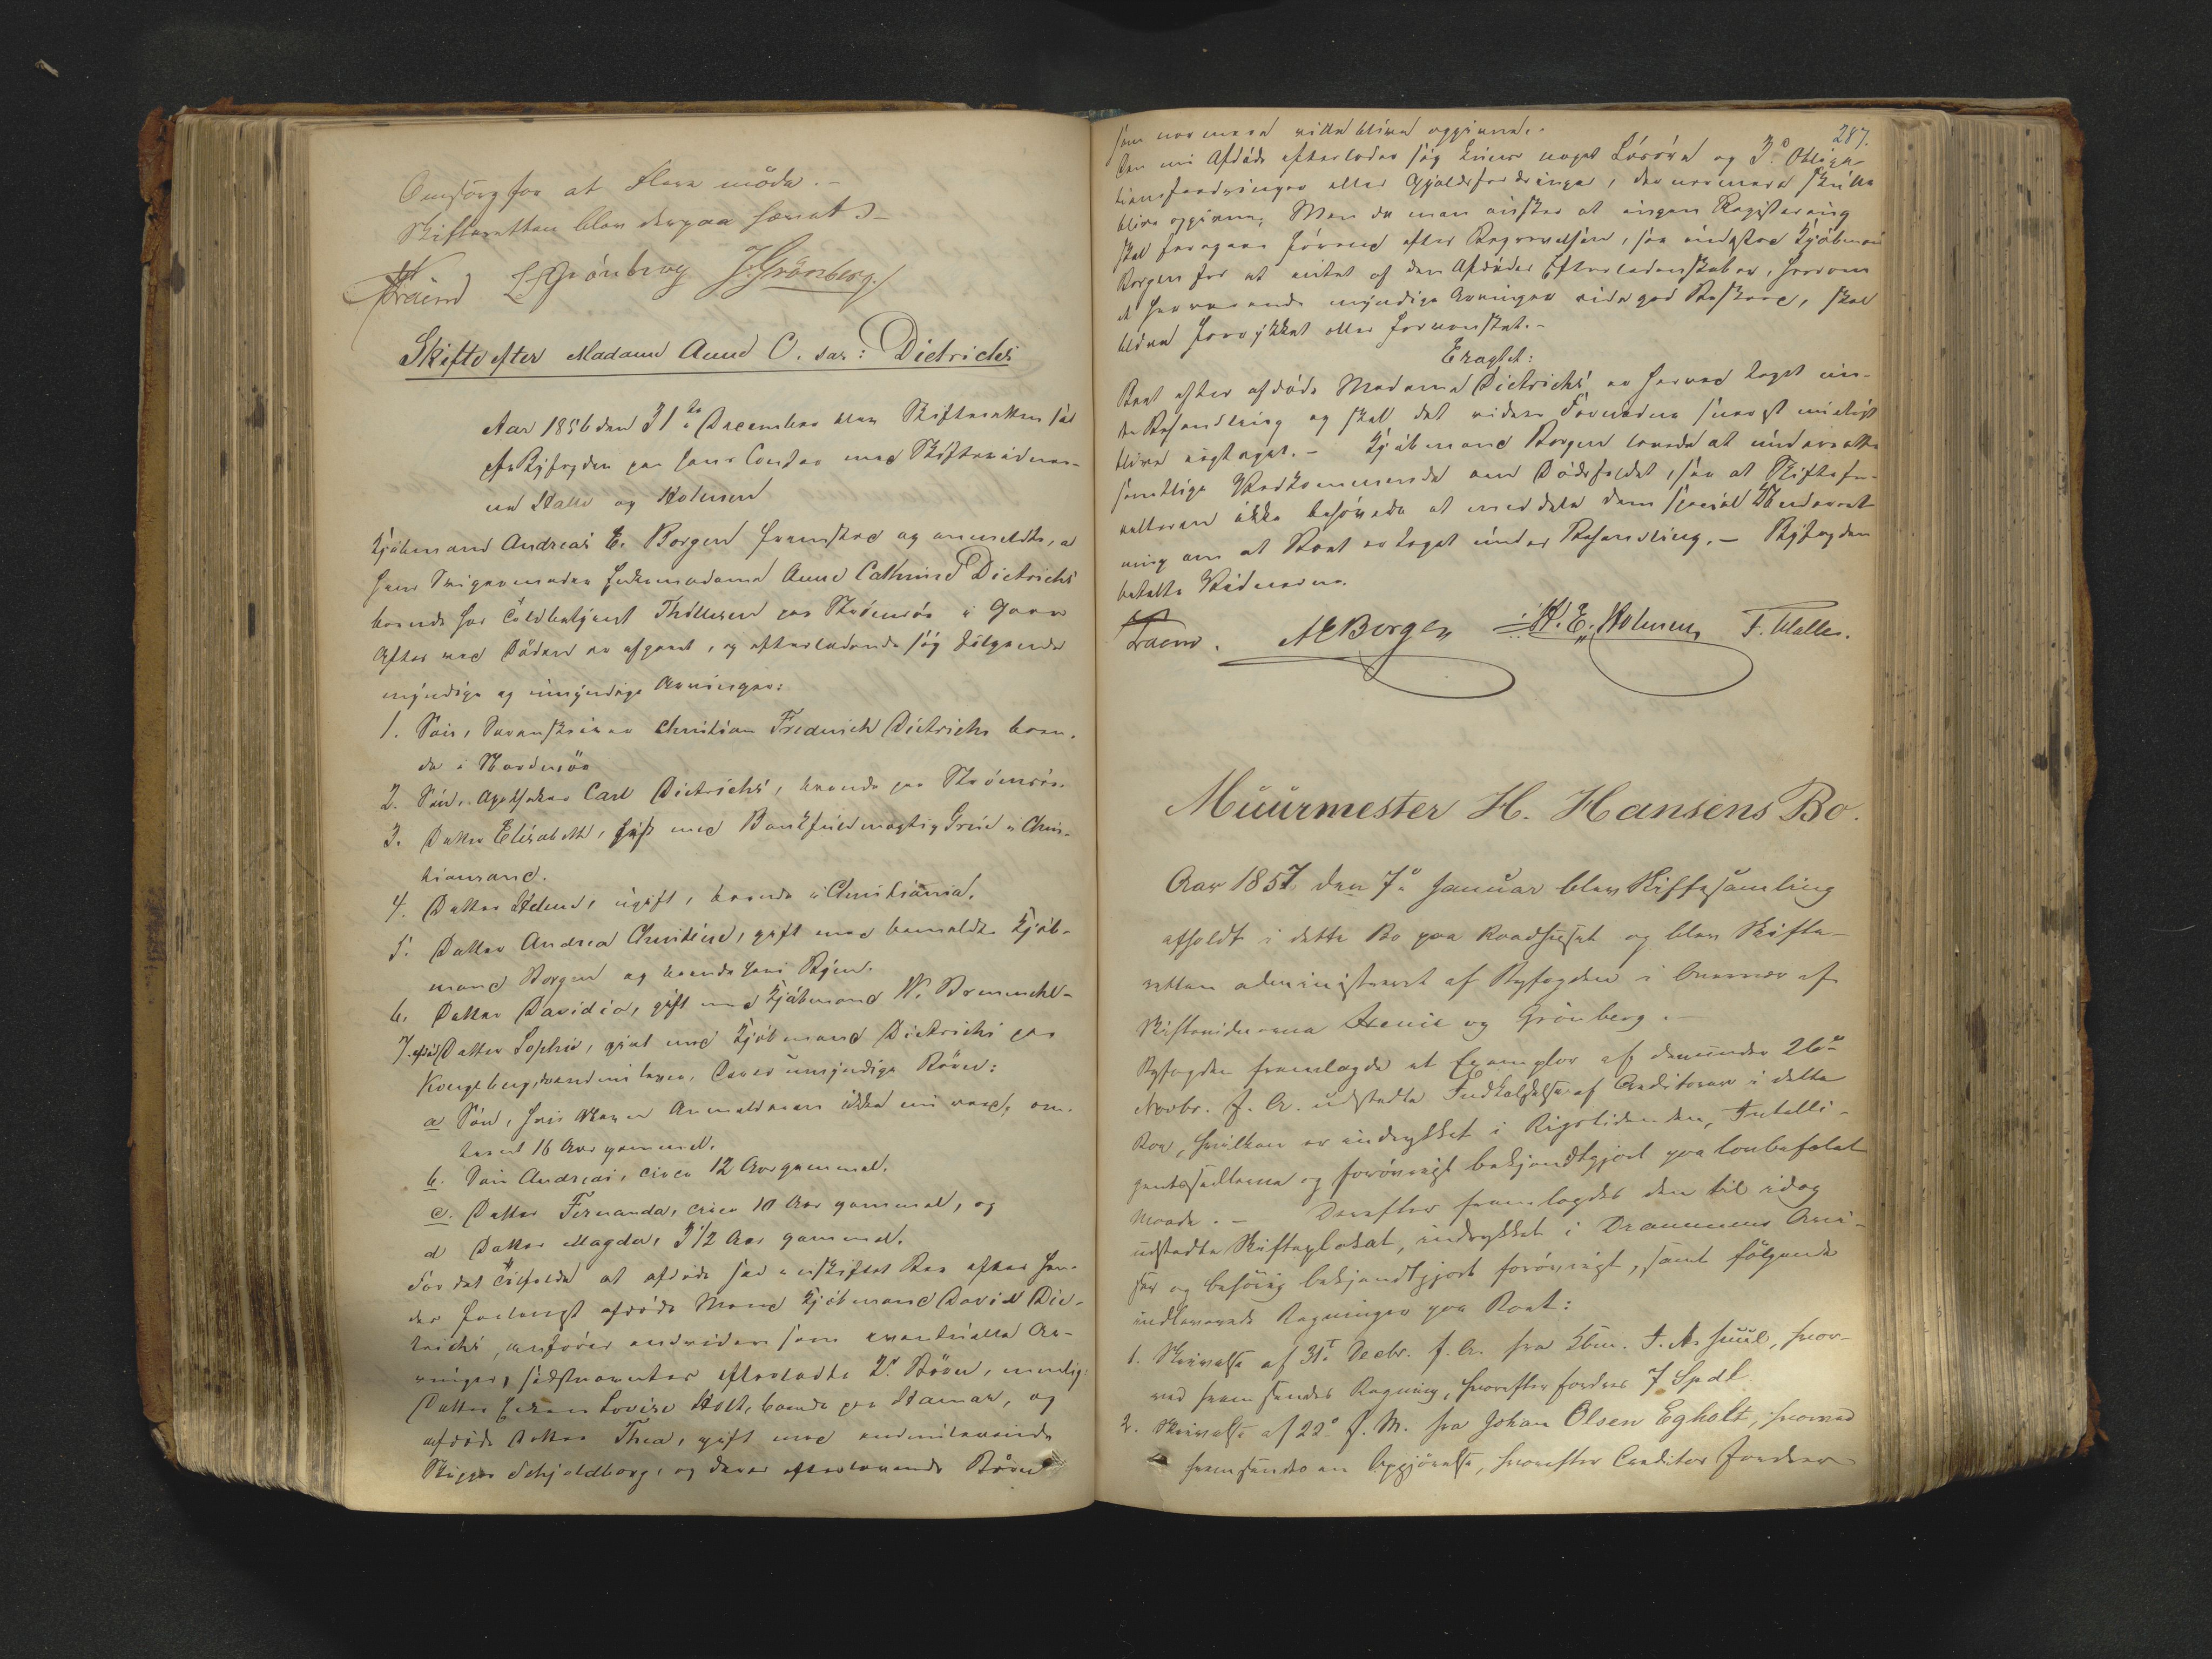 Omsorg for at flere møde. –
Skifteretten blev derpaa hævet. –
L Grönberg J. Grönberg.
Skifte efter Madame Anne C. sal: Dietrichs
Aar 1856 den 31te December blev Skifteretten sat
af Byfogden paa hans Contoir med Skiftevidner-
ne Halle og Holmsen
Kjøbmand Andreas E. Borgen fremstod og anmeldte, at
hans Svigermoder Enkemadame Anne Cathrine Dietrichs
boende hos Toldbetjent paa Strømsøe i Gaar
Aftes ved Døden er afgaaet, og efterladende sig følgende
myndige og umyndige Arvinger:
1. Søn, Christian Frederich Dietrichs boen-
de i
2. Søn, Apotheker Carl Dietrichs, boende paa Strømsøe.
3. Datter Elisabeth, gift med Bankfuldmægtig i Chris-
tiansand.
4. Datter Helene, ugift, boende i Christiania.
5. Datter Andrea Christine, gift med bemeldte Kjøb-
mand Borgen og boende her i Byen.
6. Datter Davidia, gift med Kjøbmand W.
7. Datter Sophie, gift med Kjøbmand Dietrichs paa
Kongsberg, umyndige Børn:
a Søn, hvis Navn Anmelderen ikke nu veed, om-
trent 16 Aar gammel.
b. Søn Andreas, circa 12 Aar gammel.
c. Datter Fernanda, circa 10 Aar gammel, og
d Datter Magda, 3 1/2 Aar gammel.
For det Tilfælde at afdøde sad i uskiftet Boe efter hen-
des forlængst afdøde Mand Kjøbmand David Die-
trichs, anføres endvidere som eventuelle Ar-
vinger, efterladte 2de Børn, nemlig:
Datter Lovise Holt, boende paa Hamar, og
afdøde Datter Thea, gift med endnulevende
Skipper Schjeldborg, og deres efterlevende Børn
287.
som nærmere ville blive opgivne.
Den nu Afdøde efterlader sig kuns noget Løsøre og 3de Obliga-
tionsfordringer eller Gjældsfordringer, der nærmere skulle
blive opgivne; Men da man ønsker at ingen Registrering
skal foregaae førend efter Begravelsen, saa indestod Kjøbmand
Borgen for at intet af den Afdødes Efterladenskaber, hvorom
de herværende myndige Arvinger vide god Beskeed, skal
blive forrykket eller forvansket. –
Eragtet:
Boet efter afdøde Madame Dietrichs er herved taget un-
der Behandling og skal det videre Fornødne snarest muligst
blive iagttaget. – Kjøbmand Borgen lovede at underrette
samtlige Vedkommende om Dødsfaldet, saa at Skiftefor-
valteren ikke behøvede at meddele dem speciel Underret-
ning om at Boet er taget under Behandling. – Byfogden
betalte Vidnerne.
A E Borgen H. E. Holmsen F. Halle.
Muurmester H. Hansens Bo.
Aar 1857 den 7de Januar blev Skiftesamling
afholdt i dette Bo paa Raadhuset og blev Skifte-
retten administreret af Byfogden i Overvær af
Skiftevidnerne og Grönberg. –
Byfogden fremlagde et Exemplar af den under 26de
Novbr. f. A. udstedte Indkaldelse af Creditorer i dette
Bo, hvilken er indrykket i Rigstidenden, Intelli-
gentssedlerne og forøvrigt bekjendtgjort paa lovbefalet
Maade. – Derefter fremlagdes den til idag
udstedte Skifteplakat, indrykket i Drammens Avi-
ser og behørig bekjendtgjort forøvrigt, samt følgende
indleverede Regninger paa Boet:
1. Skrivelse af 31te Decbr. f. A. fra Kbm. J. A. Juul, hvor-
ved fremsendes Regning, hvorefter fordres 7 Spdl.
2. Skrivelse af 22de f. M. fra Johan Olsen Egholt, hvorved
fremsendes en Opgjørelse, hvorefter Creditor fordrer